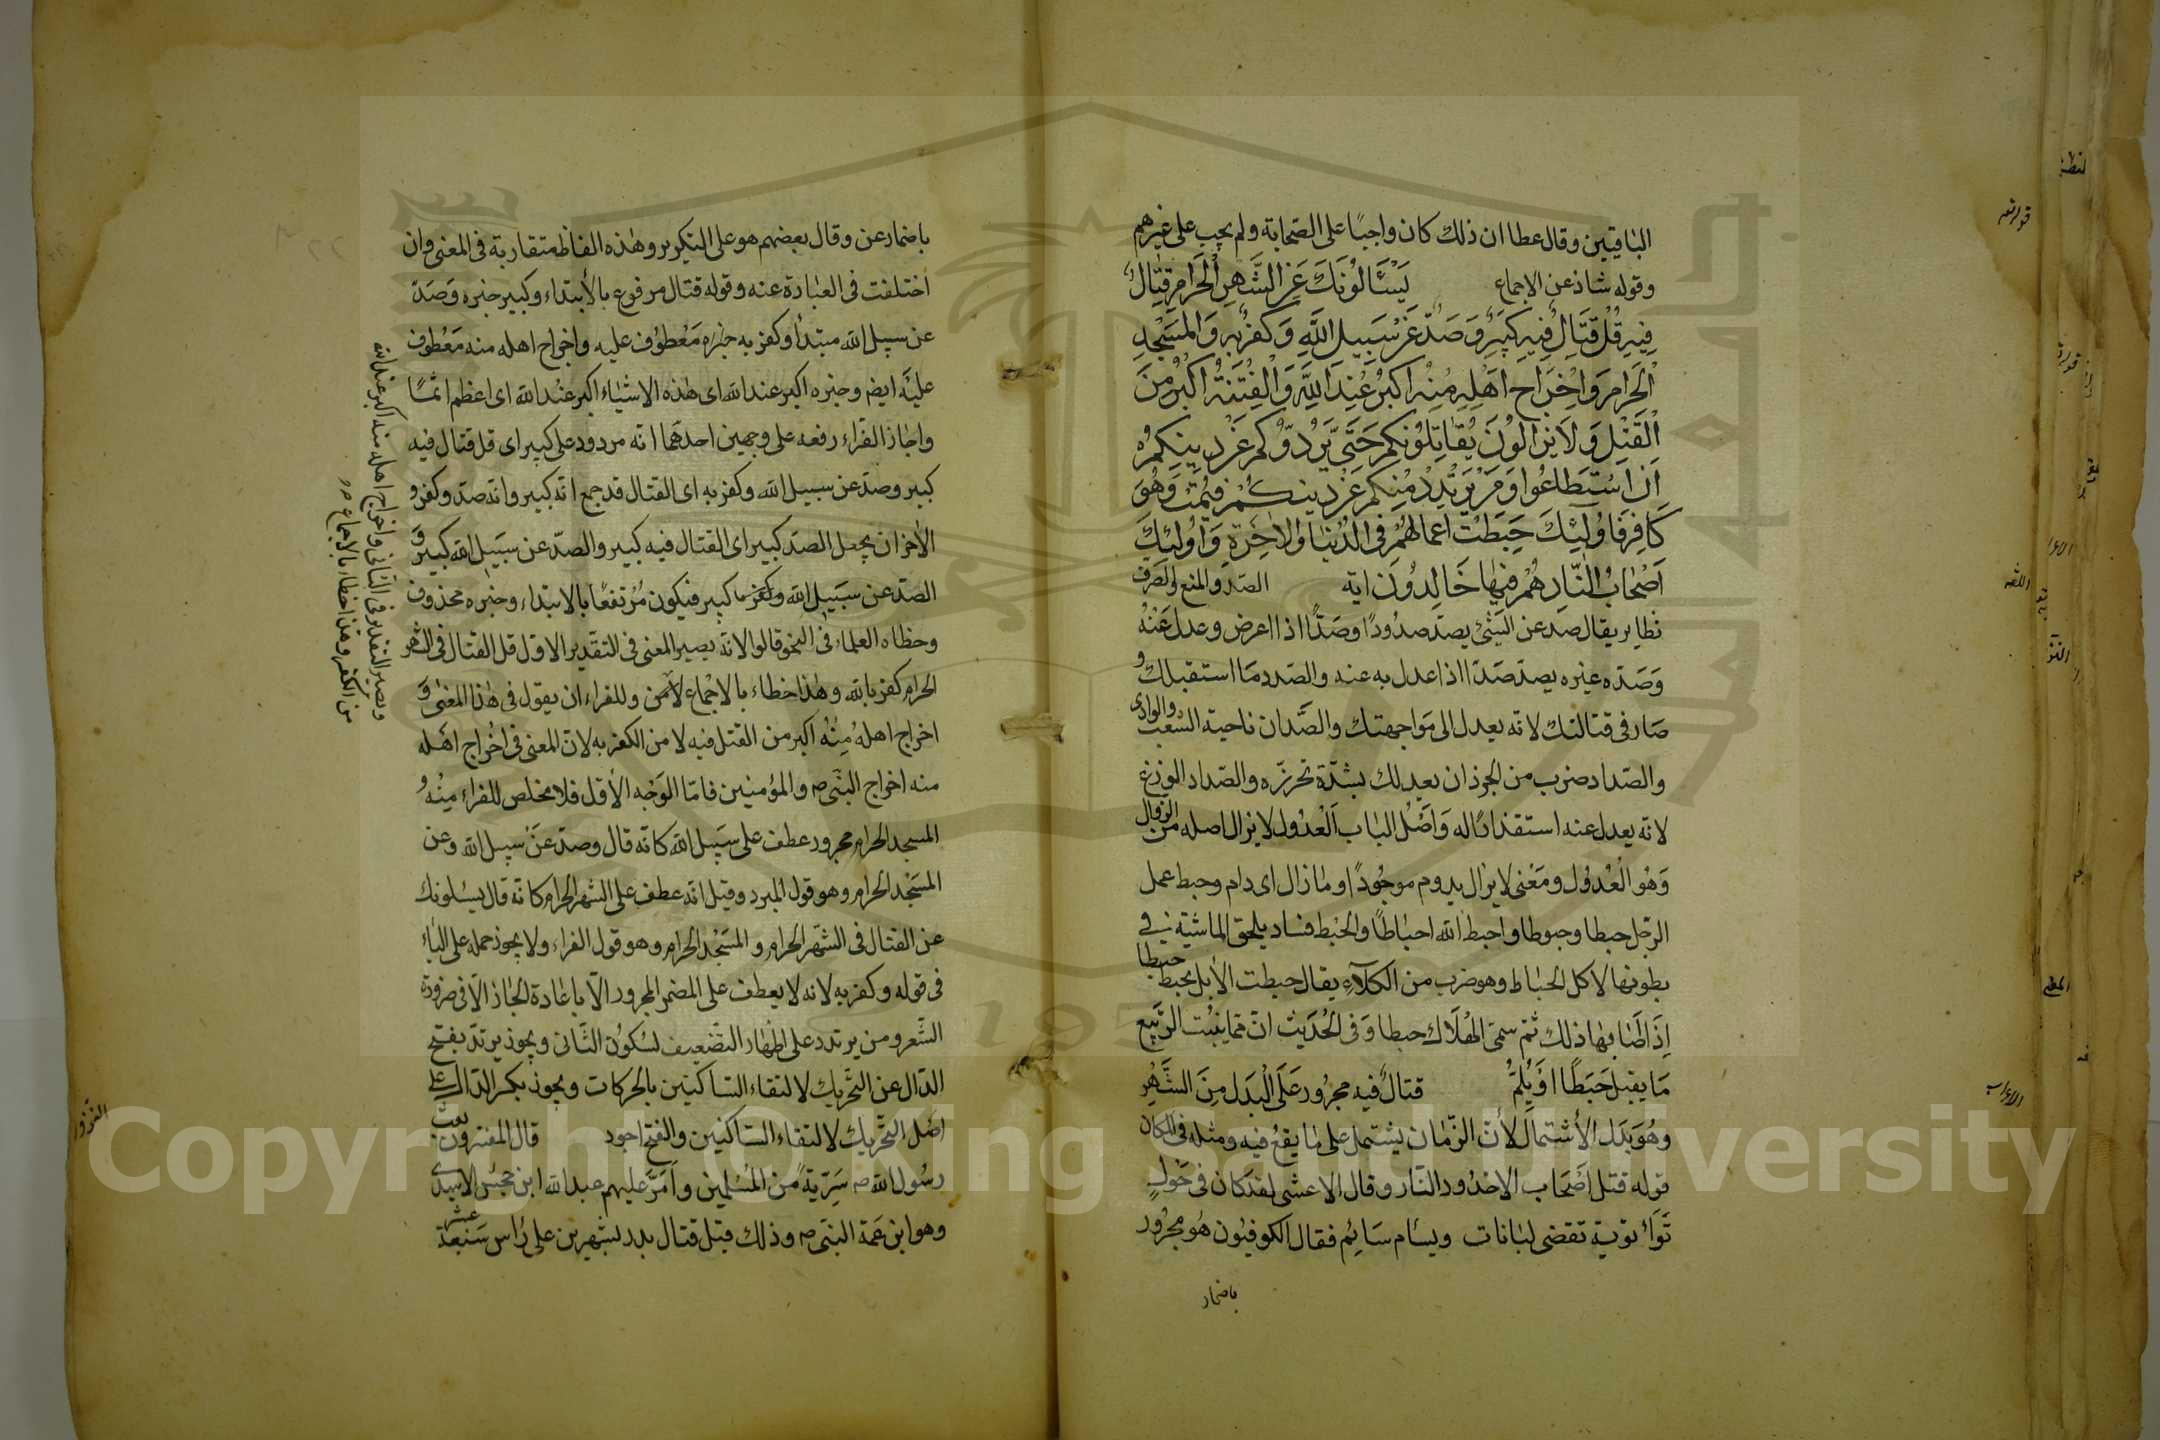 الباقيين وقال عطا ان ذلك كان واجبًا على الصّحابة ولم يجب على غيرهم
وقوله شاذ عن الاجماع يَسْئَالُونَكَ عَنِ الشَّهْرِ الْحَرَامِ قِتَالٌ
فِيهِ قُلْ قِتَالٌ فِيهِ كَبِيرٌ وَصَدٌّ عَنْ سَبِيلِ اللَّهِ وَكُفْرٌ بِهِ وَالْمَسْجِدِ
الْحَرَامِ وَإِخْرَاجُ اَهْلِهِ مِنْهُ اَكْبَرُ عِنْدَ اللَّهِ وَالْفِتْنَةُ اَكْبَرُ مِنَ
الْقَتْلِ وَلَا يَزَالُونَ يُقَاتِلُونَكُمْ حَتَّى يَرُدُّوكُمْ عَنْ دِينِكُمْ
اِنِ اسْتَطَاعُوا وَمَنْ يَرْتَدِدْ مِنْكُمْ عَنْ دِينِكُمْ فَيَمُتْ وَهُوَ
كَافِرٌ فَاُولَئِكَ حَبِطَتْ اَعْمَالُهُمْ فِى الدُّنْيَا وَالْاٰخِرَةِ وَاُولَئِكَ
اَصْحَابُ النَّارِ هُمْ فِيهَا خَالِدُونَ اية الصّد والمنع والصرف
نظاير يقال صد عن الشئ يصدّ صدُودًا وصَدًّا اذا اعرض وعدل عَنْهُ
وَصَدّه غيره يصدّ صَدّا اذا عدل به عنه والصّدد مَا استقبلك و
صَار فى قبالتك لانّه يعدل الى مَواجهتك والصَّدان ناحية الشعب والوادى
والصّداد ضرب من الجرذان يعدلك بشدّة تحرزّه والصّداد الوزغ
لانه يعدل عنه استقذارًا له وَاصْلُ الباب الْعدُول لا يزال اصله من الزوال
وَهُو الْعُدُول ومَعْنى لا يزال يدوم موجُودًا وما زال اى دام وحبط عمل
الرّجل حبطا وحبوطا واحبط الله احباطًا والحَبَط فساد يلحق الماشية فى
بطونها لاكل الحباط وهو ضرب من الكلآء يقال حبطت الأبل تحبط حبطا
اِذَا اَصَابها ذلك ثمّ سمّى الهْلَاك حبطا وَفى الحُدَيث انّ ممّا ينْبُت الرّبيع
مَا يقبل حَبَطًا اوَ يُلِمّ قتالٌ فيه مجرُور عَلَى الْبَدل مِنَ الشَّهْرِ
وهُوَ بَدل الأشتمال لأنّ الزّمان يشتمل على ما يقعُ فيه ومثله فى المكان
قوله قتل اَصْحَاب الاخدُود النّار وقال الاعشى لقد كان فى حَوْلٍ
ثَوَاءٍ ثويته تقضى لبانات ويسأم سَائِم فقال الكوفيُون هُو مجرُور
باضمار
باضمار عن وقال بعضهم هو على التكرير وهٰذه الفاظ متقاربة فى المعنى وان
اختلفت فى العبارة عنه وقوله قتال مرفوع بالأبتداء وكبير خبره وَصَدّ
عن سبيل الله مبتدأ وكفر به خبره مَعْطوُف عليه واخراج اهله منه مَعْطوُف
عليَه ايضم وخبره اكبر عند الله اى هٰذه الاشياء اكبر عند الله اى اعظم اثمًا
واجاز الفرّاء رفعه على وجهين احدهما انّه مردود على كبير اى قل قتال فيه
كبير وصدّ عن سبيل الله وكفر به اى القتال قد جمع انّه كبير وانّه صدّ وكفر و
الاٰخر ان يجعل الصدّ كبيرا اى القتال فيه كبير والصدّ عن سَبَيل الله كبير و
الصدّ عن سَبَيل الله وكفر به كبير فيكون مُرْتفعًا بالابتداء وخبره محذوف
وخطاه العلماء فى النحو قالوا لانّه يصير المعنى فى التقدير الاوّل قل القتال فى الشّهر
الحرام كفر بالله وهٰذا خطاء بالاجْماع وللفراء ان يقول فى هٰذا المعنى وَ
اخراج اهلهُ مِنْهُ اكبر من القتل فيه لا من الكفر به لانّ المعنى فى اخْراج اهْله
منه اخراج النّبى ص والمؤمنين فامّا الوَجْه الأوّل فلا مخلص للفراء مِنْهُ و
المسجد الحرام مجرور عطف على سَبيل الله كانّه قال وصدّ عَنْ سبيل الله وعن
المسَجْد الحرام وهو قول المبرد وقيل انّه عطف على الشهر الحرام كانّه قال يسئلونك
عن القتال فى الشّهر الحرام والمسَجْد الحرام وهو قول الفراء ولا يجوز حمله على الباء
فى قوله وكفر به لانه لا يعطف على المضمر المجرور الّا باعادة الجار الّا فى ضرورة
الشّعر ومن يرتدد على اظهار التضعيف لسكون الثّانى ويجوز يرتدّ بفتح
الدّال عن التّحريك لالتقاء السّاكنين بالحركات ويجوز بكسر الدّال على
اصل التحّريك لالتقاء السّاكنين والفتح اجود قال المفسّرون بعث
رسُول الله ص سَرِيّة من المْسُلمين واَمّر عليهم عبد الله ابن جحش الاسدى
وهو ابن عَمة النبّى ص وذلك قبل قتال بدر بشهرين على رأس سَبعة عشر
ويصير التقدير فى الثّانى واخراج اهله منه اكبر عند الله
من الكفر وهذا خطاء بالاجماع